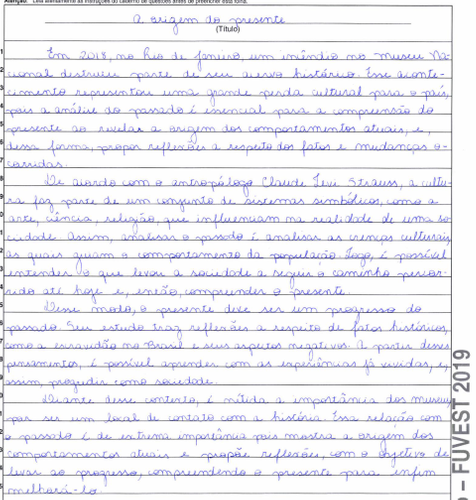 Atenção: Leia atentamente as instruções do caderno de questões antes de preencher esta folha.
A origem do presente
(Título)
Em 2018, no Rio de Janeiro, um incêndio no Museu Na-
cional destruiu parte de seu acervo histórico. Esse aconte-
cimento representou uma grande perda cultural para o país,
pois a análise do passado é essencial para a compreensão do
presente ao revelar a origem dos comportamentos atuais, e,
dessa forma, propor reflexões a respeito dos fatos e mudanças o-
corridas.
De acordo com o antropólogo Claude Levi Strauss, a cultu-
ra faz parte de um conjunto de sistemas simbólicos, como a
arte, ciência, religião, que influenciam na realidade de uma so-
ciedade. Assim, analisar o passado é analisar as crenças culturais
as quais guiam o comportamento da população. Logo, é possível
entender o que levou a sociedade a seguir o caminho percor-
rido até hoje e, então, compreender o presente.
Desse modo, o presente deve ser um progresso do
passado. Seu estudo traz reflexões a respeito de fatos históricos,
como a escravidão no Brasil e seus aspectos negativos. A partir desses
pensamentos, é possível aprender com as experiências já vividas, e,
assim, progredir como sociedade.
Diante desse contexto, é nítida a importância dos museus
por ser um local de contato com a história. Essa relação com
o passado é de extrema importância pois mostra a origem dos
comportamentos atuais e propõe reflexões, com o objetivo de
levar ao progresso, compreendendo o presente para enfim
melhorá-lo.
– FUVEST 2019